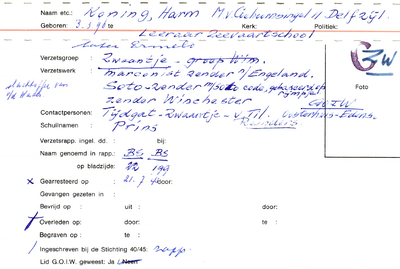 Naam etc.: Koning, Harm M.v. singel 11 Delfzijl.
Geboren: 3.3.98 Kerk: Politiek:
Leeraar Zeevaartschool
later Ermelo
Verzetsgroep : Zwaantje - groep Wim.
Verzetswerk : marconist zender n/Engeland.
Soto-zender m/soto code, op
zender Winchester
G.O.I.W
Foto
Contactpersonen: Tijdgat-Zwaantje- v. Til. Oosterhuis-Edens.
Reinders
Schuilnaam : Prins
Verzetsrapp. ingel. dd. : bij:
Naam genoemd in rapp.: BS BS
op bladzijde: 22 199
x Gearresteerd op : 21.7.44 door:
Gevangen gezeten in :
Bevrijd op : uit : door :
† Overleden op : door: te :
Begraven op : te :
/ Ingeschreven bij de Stichting 40/45: rapp.
Lid G.O.I.W. geweest: Ja / Neen